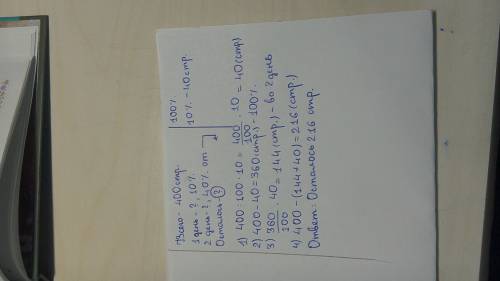 Всего - 400 стр. 100%
1 день - ?, 10% 10% - 40 стр.
2 день - ?, 40% от
Осталось - ?
1) 400 : 100 · 10 = 400/100 · 10 = 40 (стр)
2) 400 - 40 = 360 (стр.) - 100%.
3) 360/100 · 40 = 144 (стр.) - во 2 день
4) 400 - (144 + 40) = 216 (стр.)
Ответ: Осталось 216 стр.